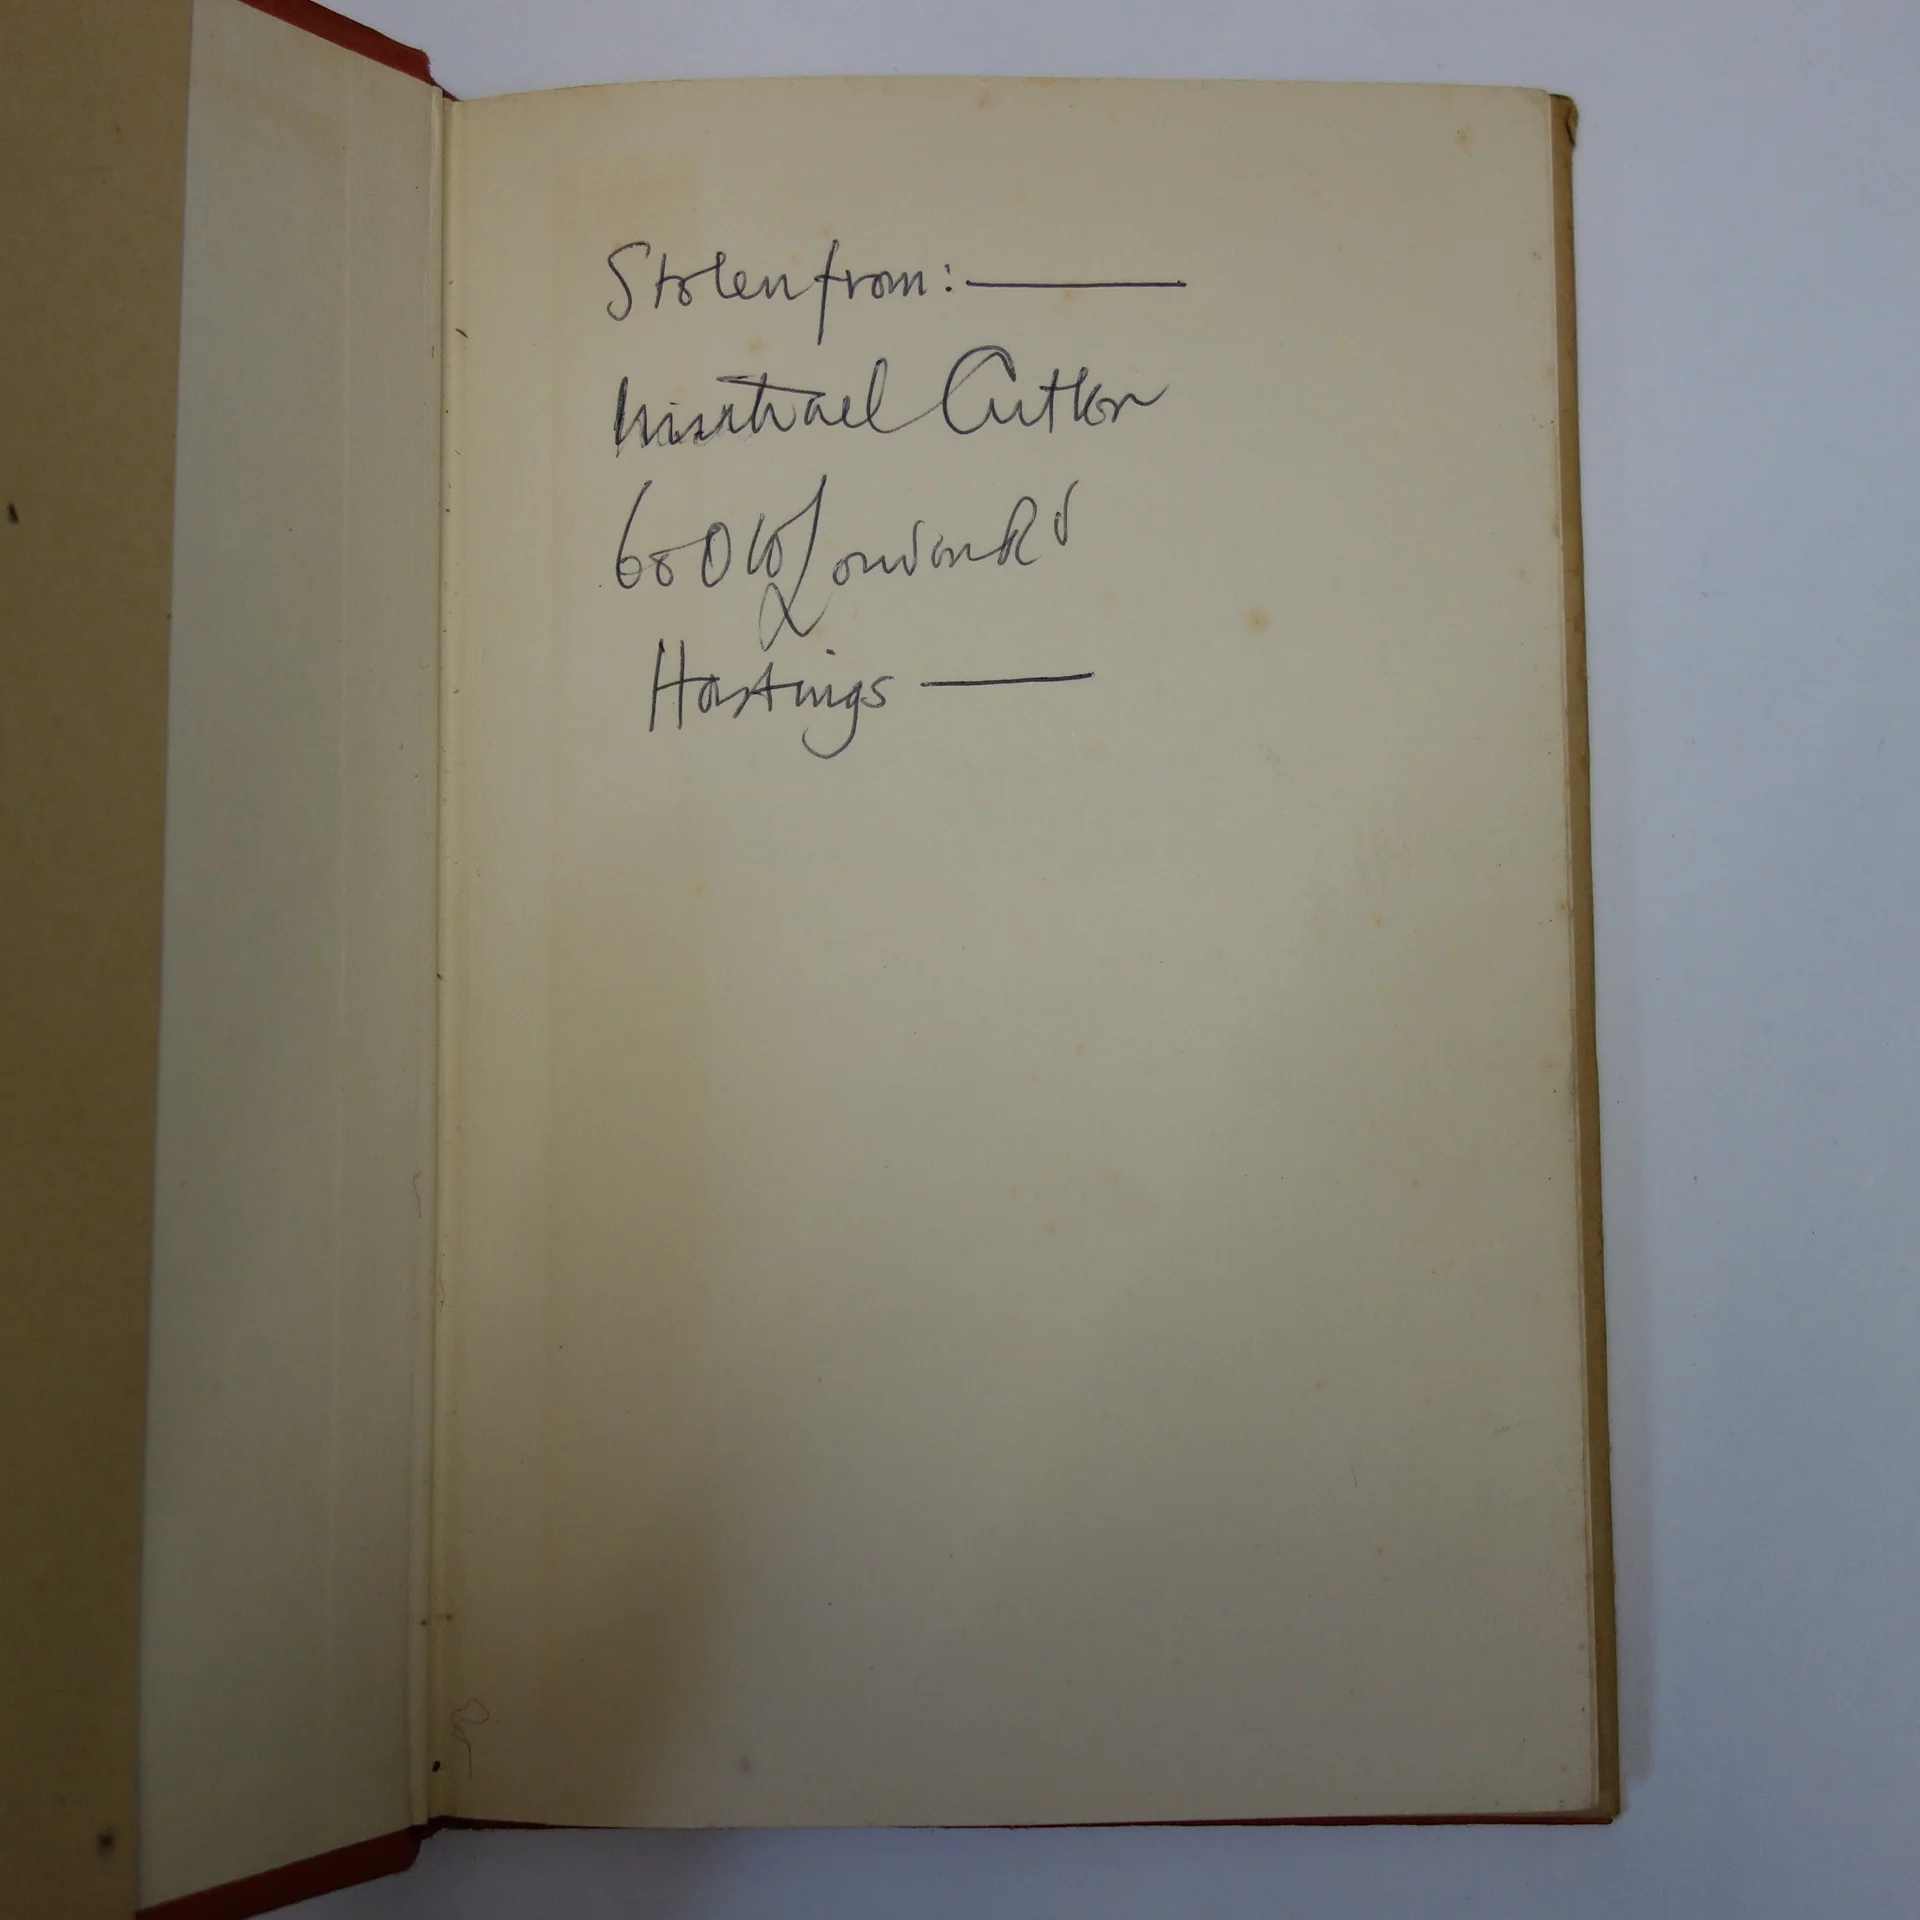 Stolen from: ———
Michael Cutler
68 Old London Rd
Hastings ———